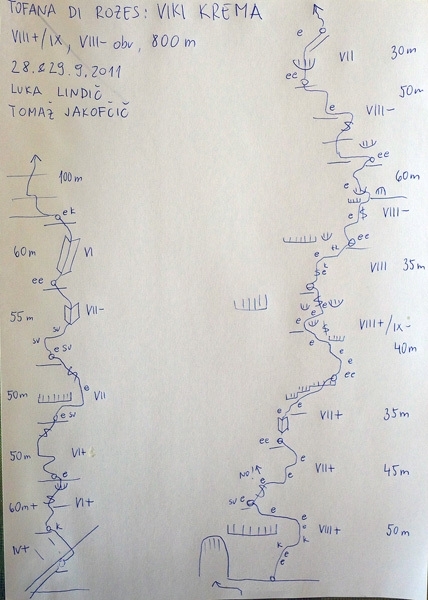 TOFANA DI ROZES: VIKI KREMA
VIII+/IX, VIII- obv, 800 m
28.&29.9.2011
LUKA LINDIČ
TOMAŽ JAKOFČIČ
100m
e k
60m
VI
ee
55m
VII-
sv
sv
e sv
e
50m
VII
e sv
50m
VI+
e
60m+
VI+
k
IV+
e
VII
30m
ee
50m
e
VIII-
ee
60m
e
e
VIII-
ee
e
VIII
35m
e
e
VIII+/IX-
e
40m
e
e
ee
e
e
VII+
35m
ee
NO!
e
VII+
45m
e
sv e
e
e
e
VIII+
50m
k
k
e
e